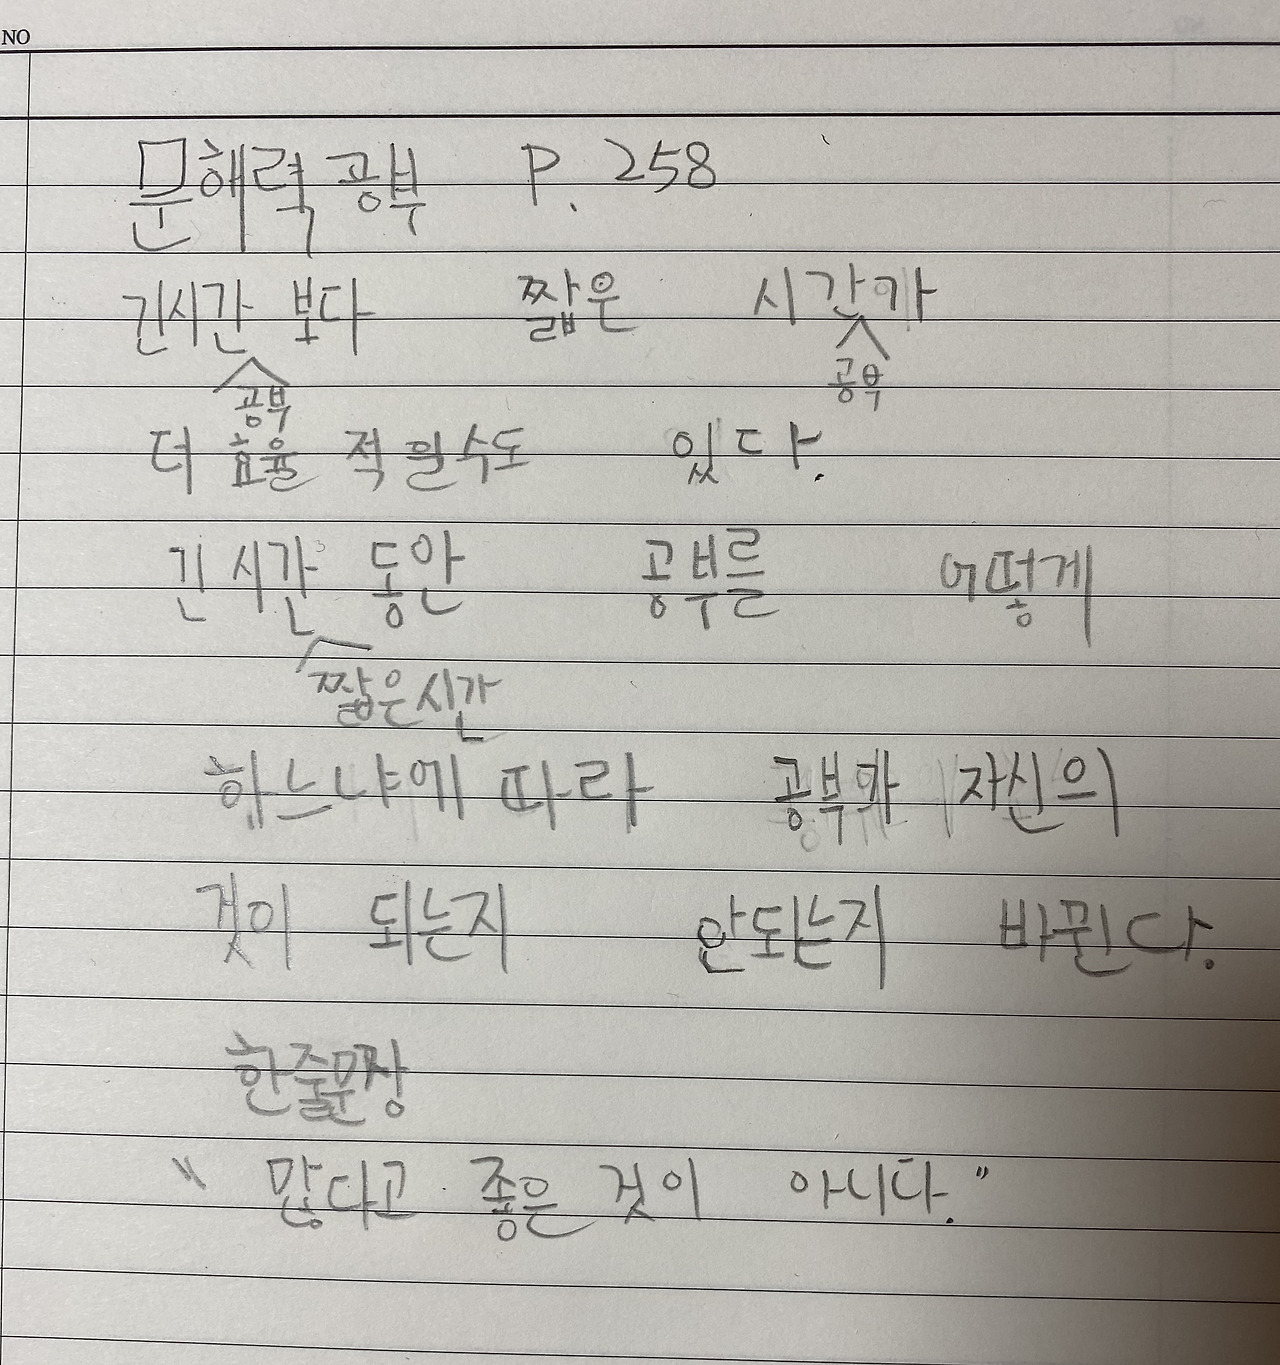 NO
문해력 공부 P. 258
긴시간 보다 짧은 시간가
공부 공부
더 효율 적 일수도 있다.
긴 시간 동안 공부를 어떻게
짧은시간
하느냐에 따라 공부가 자신의
것이 되는지 안되는지 바뀐다.
한줄문장
" 많다고 좋은 것이 아니다."